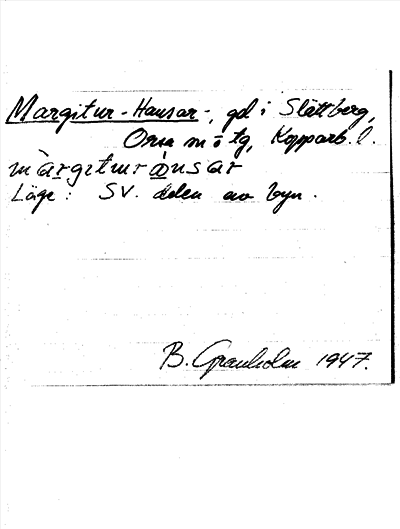 Margitur-Hansar-, gd i Slättberg,
Orsa sn o tg, Kopparb. l.
màrgıturònsar
Läge: SV. delen av byn.
B. Granholm 1947.